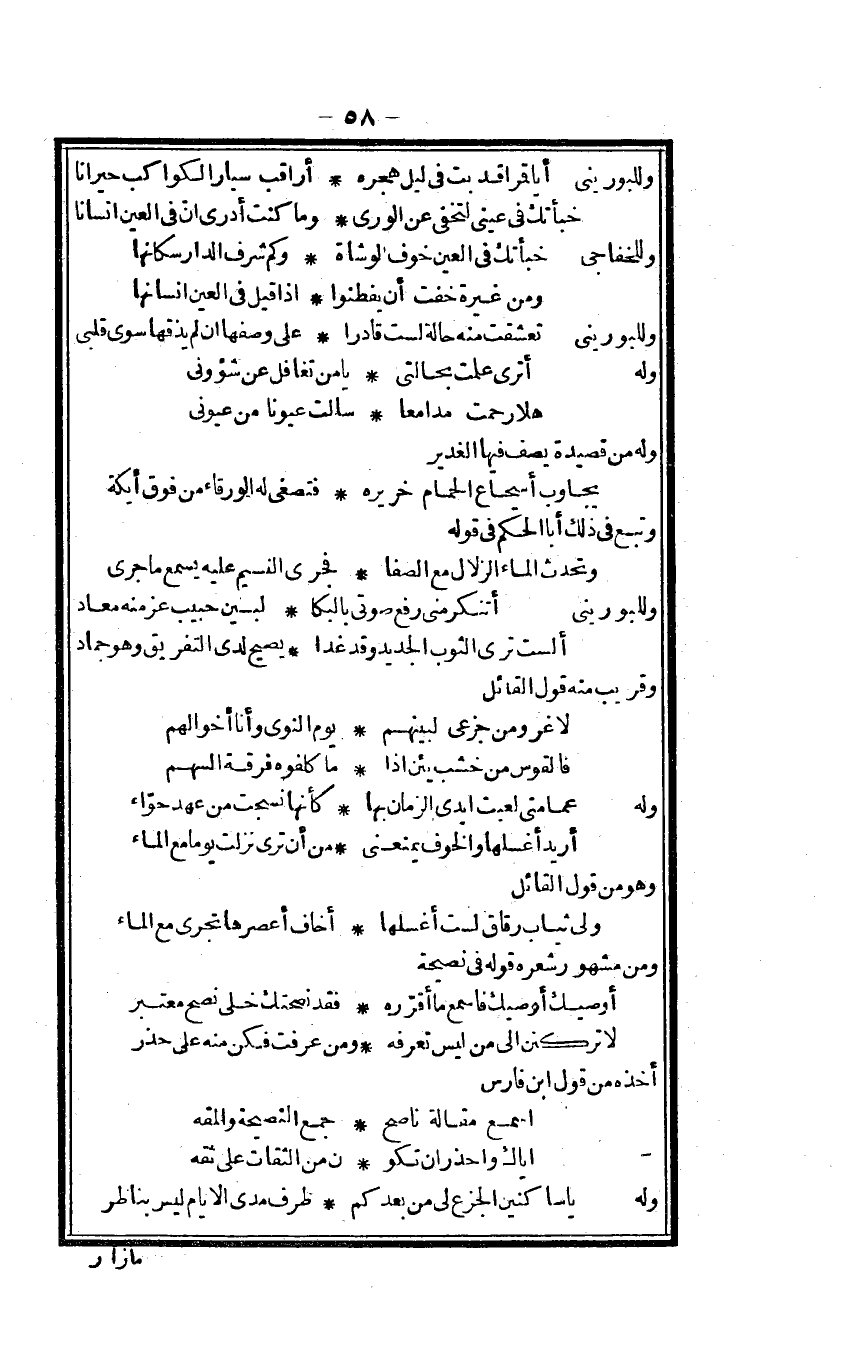 - ٥٨ -
وللبوريني أيا قمرا قد بت في ليل هجره * أراقب سيار الكواكب حيرانا
خبأتك في عيني لتخفى عن الورى * وما كنت أدري ان في العين انسانا
وللخفاجي خبأتك في العين خوف الوشاة * وكم شرف الدار سكانها
ومن غيرة خفت أن يفطنوا * اذا قيل في العين انسانها
وللبوريني تعشقت منه حالة لست قادرا * على وصفها ان لم يذقها سوى قلبي
وله أترى علمت بحالتي * يا من تغافل عن شؤوني
هلا رحمت مدامعا * سالت عيونا من عيوني
وله من قصيدة يصف فيها الغدير
يجاوب أسجاع الحمام خريره * فتصغى له الورقاء من فوق أيكة
وتبع في ذلك أبا الحكم في قوله
وتحدث الماء الزلال مع الصفا * فجرى النسيم عليه يسمع ما جرى
وللبوريني أتنكر مني رفع صوتي بالبكا * لبين حبيب عز منه معاد
ألست ترى الثوب الجديد وقد غدا * يصيح لدى التفريق وهو جماد
وقريب منه قول القائل
لا غرو من جزعى لبينهم * يوم النوى وأنا أخو الهم
فالقوس من خشب يئن اذا * ما كلفوه فرقة السهم
وله عمامتي لعبت ايدى الزمان بها * كأنها نسجت من عهد حوّاء
أريد أغسلها والخوف يمنعنى * من أن ترى نزلت يوما مع الماء
وهو من قول القائل
ولى ثياب رقاق لست أغسلها * أخاف أعصرها تجرى مع الماء
ومن مشهور شعره قوله في نصيحة
أوصيك أوصيك فاسمع ما أقرّره * فقد نصحتك خلى نصح معتبر
لا تركنن الى من ليس تعرفه * ومن عرفت فكن منه على حذر
أخذه من قول ابن فارس
اسمع مقالة ناصح * جمع النصيحة والمقه
اياك واحذر ان تكو * ن من الثقات على ثقه
وله يا ساكنين الجزع لى من بعدكم * طرف مدى الايام ليس بناظر
ما زار